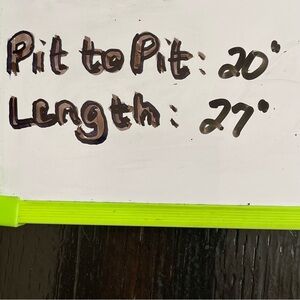 Pit to Pit: 20"
Length: 27"